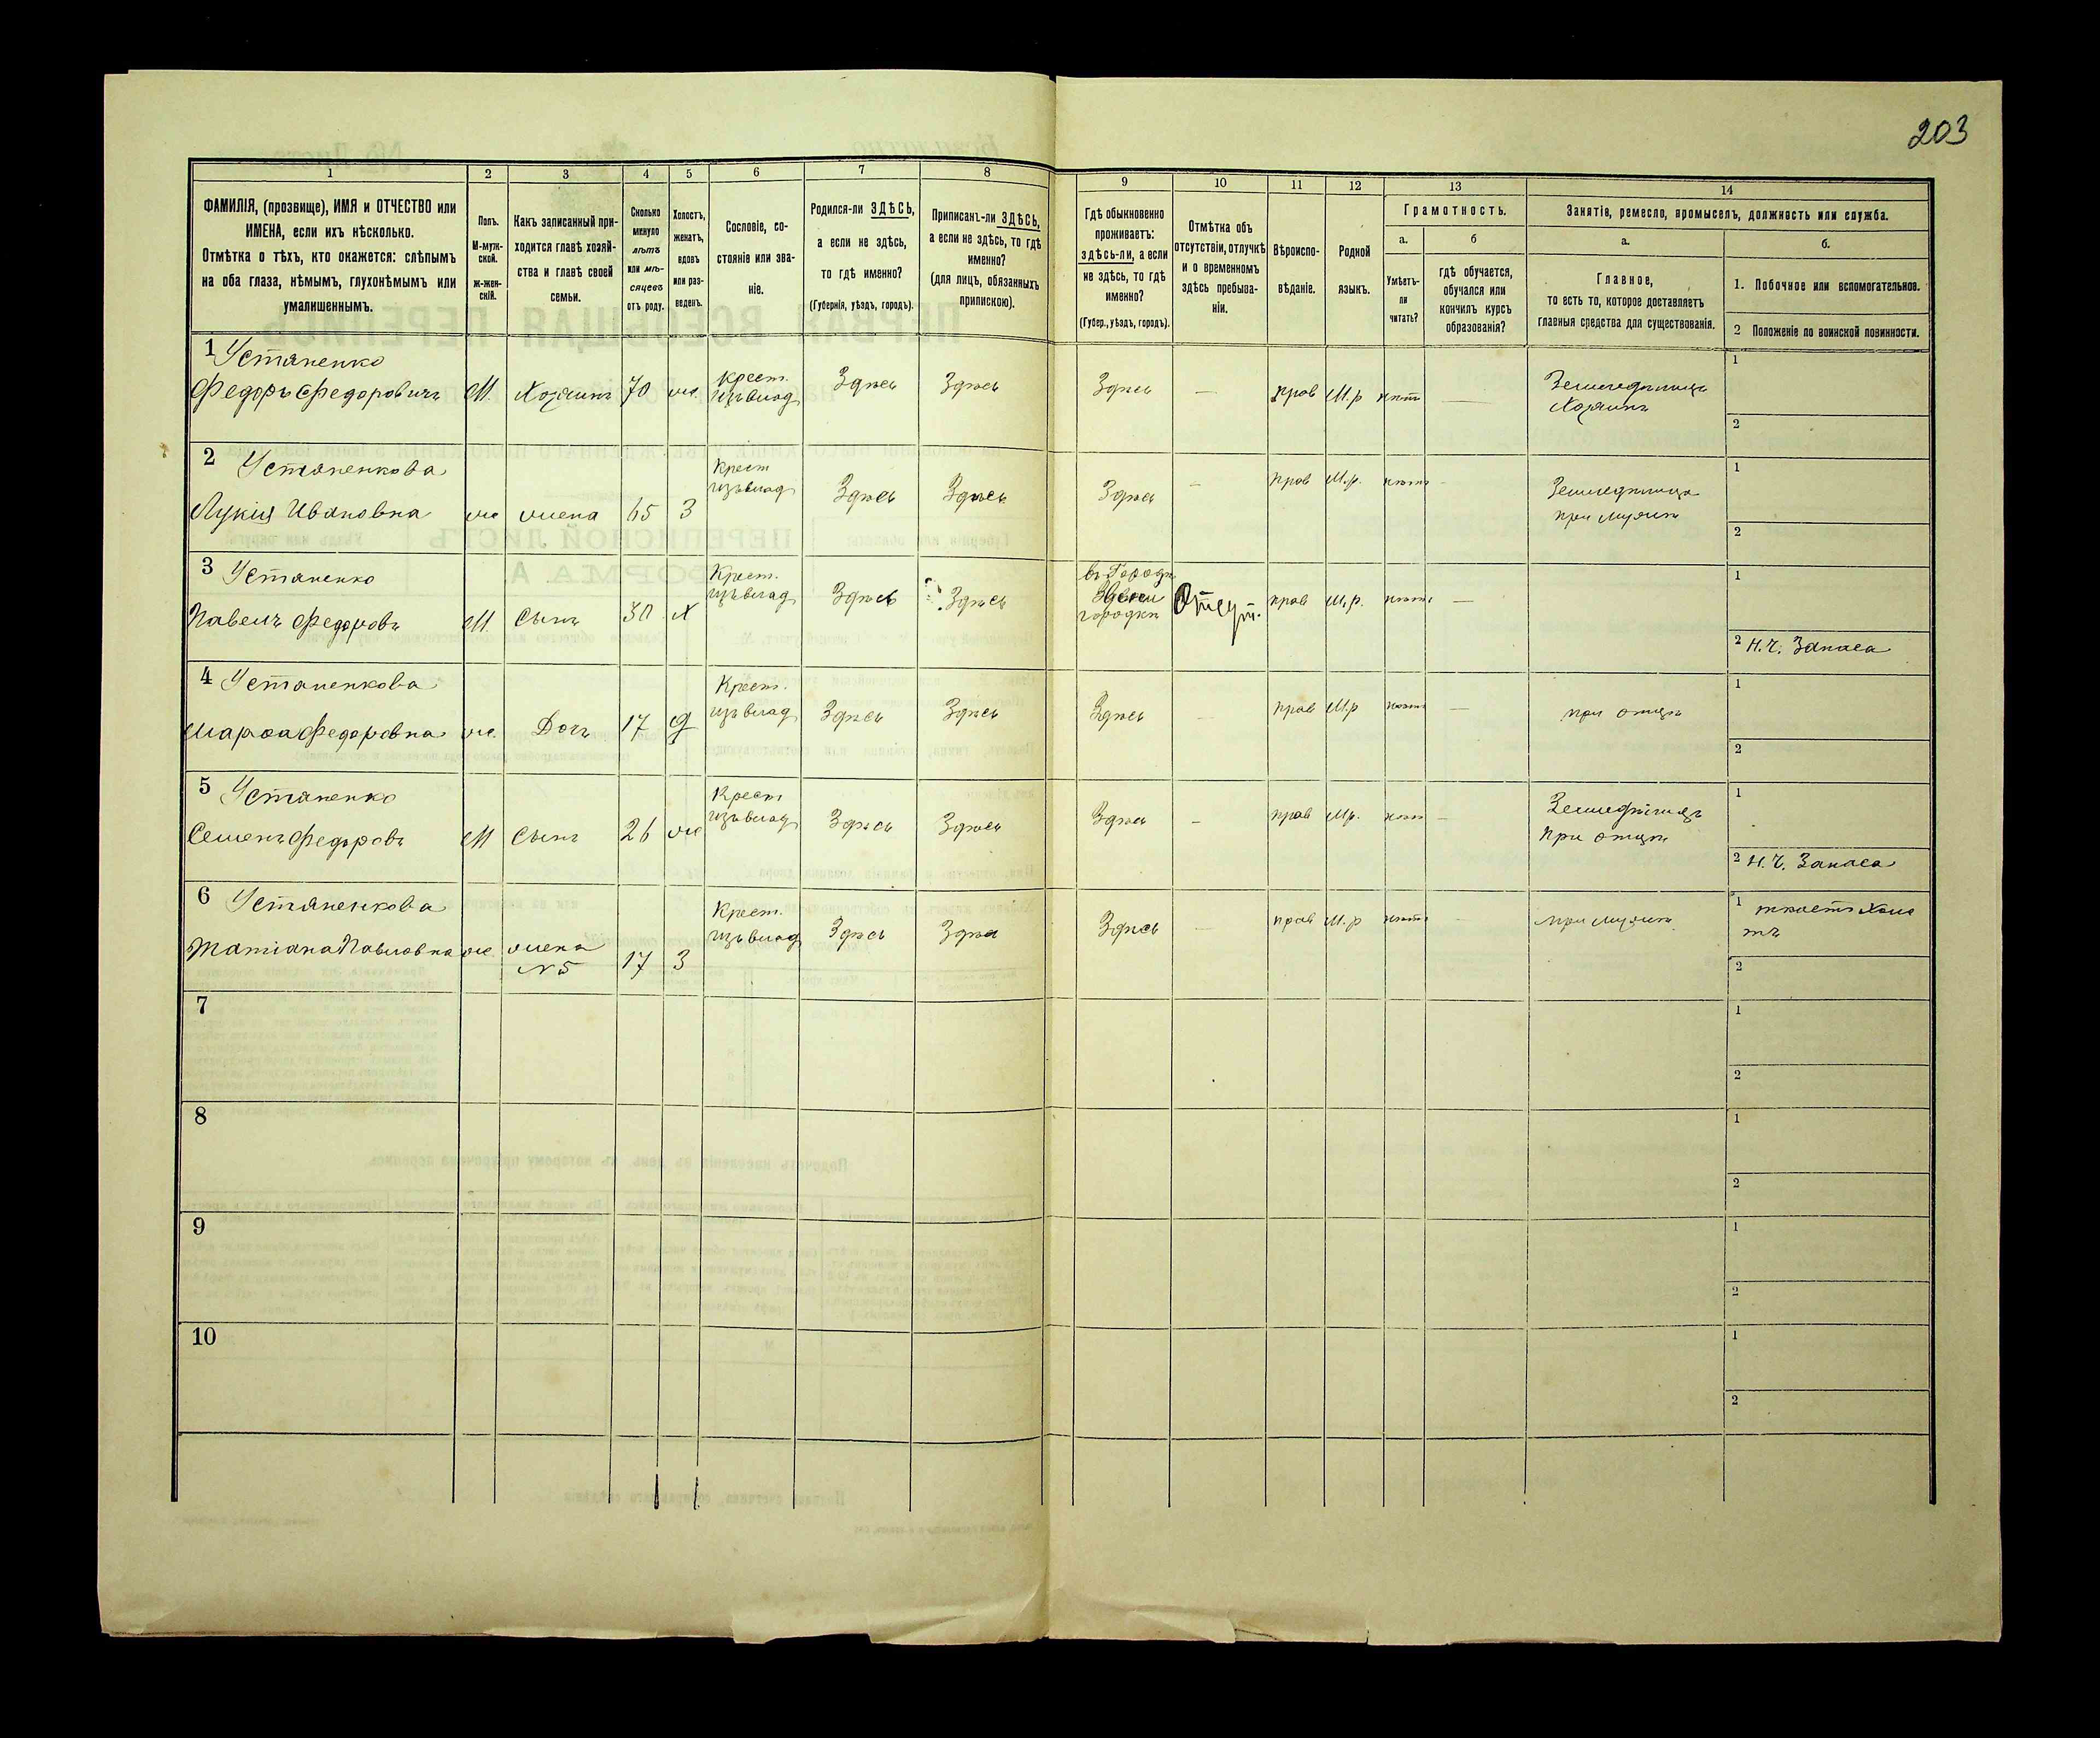 203
1
2
3
4
5
6
7
8
9
10
11
12
13
14
ФАМИЛІЯ, (прозвище), ИМЯ и ОТЧЕСТВО или
ИМЕНА, если ихъ нѣсколько.
Отмѣтка о тѣхъ, кто окажется: слѣпымъ
на оба глаза, нѣмымъ, глухонѣмымъ или
умалишеннымъ.
Полъ.
М-муж-
ской.
Ж-жен-
скій.
Какъ записанный при-
ходится главѣ хозяй-
ства и главѣ своей
семьи.
Сколько
минуло
лѣтъ
или мѣ-
сяцевъ
отъ роду.
Холостъ,
женатъ,
вдовъ
или раз-
веденъ.
Сословіе, со-
стояніе или зва-
ніе.
Родился-ли ЗДѢСЬ,
а если не здѣсь,
то гдѣ именно?
(Губернія, уѣздъ, городъ).
Приписанъ-ли ЗДѢСЬ,
а если не здѣсь, то гдѣ
именно?
(для лицъ, обязанныхъ
припискою).
Гдѣ обыкновенно
проживаетъ:
здѣсь-ли, а если
не здѣсь, то гдѣ
именно?
(Губер., уѣздъ, городъ).
Отмѣтка объ
отсутствіи, отлучкѣ
и о временномъ
здѣсь пребыва-
ніи.
Вѣроиспо-
вѣданіе.
Родной
языкъ.
Грамотность.
а.
Умѣетъ-
ли
читать?
б
гдѣ обучается,
обучался или
кончилъ курсъ
образованія?
Занятіе, ремесло, промыселъ, должность или служба.
а.
Главное,
то есть то, которое доставляетъ
главныя средства для существованія.
б.
1. Побочное или вспомогательное.
2 Положеніе по воинской повинности.
1 Устяненко
Федоръ Федоровичъ М. Хозяинъ 70 ж. Крест. изъ влад Здѣсь Здѣсь Здѣсь — прав М.р нѣтъ — Земледѣлецъ
Хозяинъ
1
2
2 Устяненкова
Лукия Ивановна ж жена 65 З Крест изъ влад Здѣсь Здѣсь Здѣсь — прав М.р. нѣтъ - Земледѣлица
при мужѣ
1
2
3 Устяненко
Павелъ Федоровъ М. Сынъ 30 Х Крест. изъ влад Здѣсь Здѣсь Отсут. прав М.р. нѣтъ —
1
2 Н.Ч. Запаса
4 Устяненкова
Марѳа Федоровна ж. Дочь 17 Д Крест. изъ влад Здѣсь Здѣсь Здѣсь — прав М.р нѣтъ — при отцѣ
1
2
5 Устяненко
Семенъ Федоровъ М Сынъ 26 ж Крест изъ влад Здѣсь Здѣсь Здѣсь — прав М.р. нѣтъ — Земледѣлецъ
при отцѣ
1
2 Н.Ч. Запаса
6 Устяненкова
Татіана Павловна ж жена
№5 17 З Крест. изъ влад Здѣсь Здѣсь Здѣсь — прав М.р нѣтъ при мужѣ
1 ткаетъ Хол
тъ
2
7
1
2
8
1
2
9
1
2
10
1
2